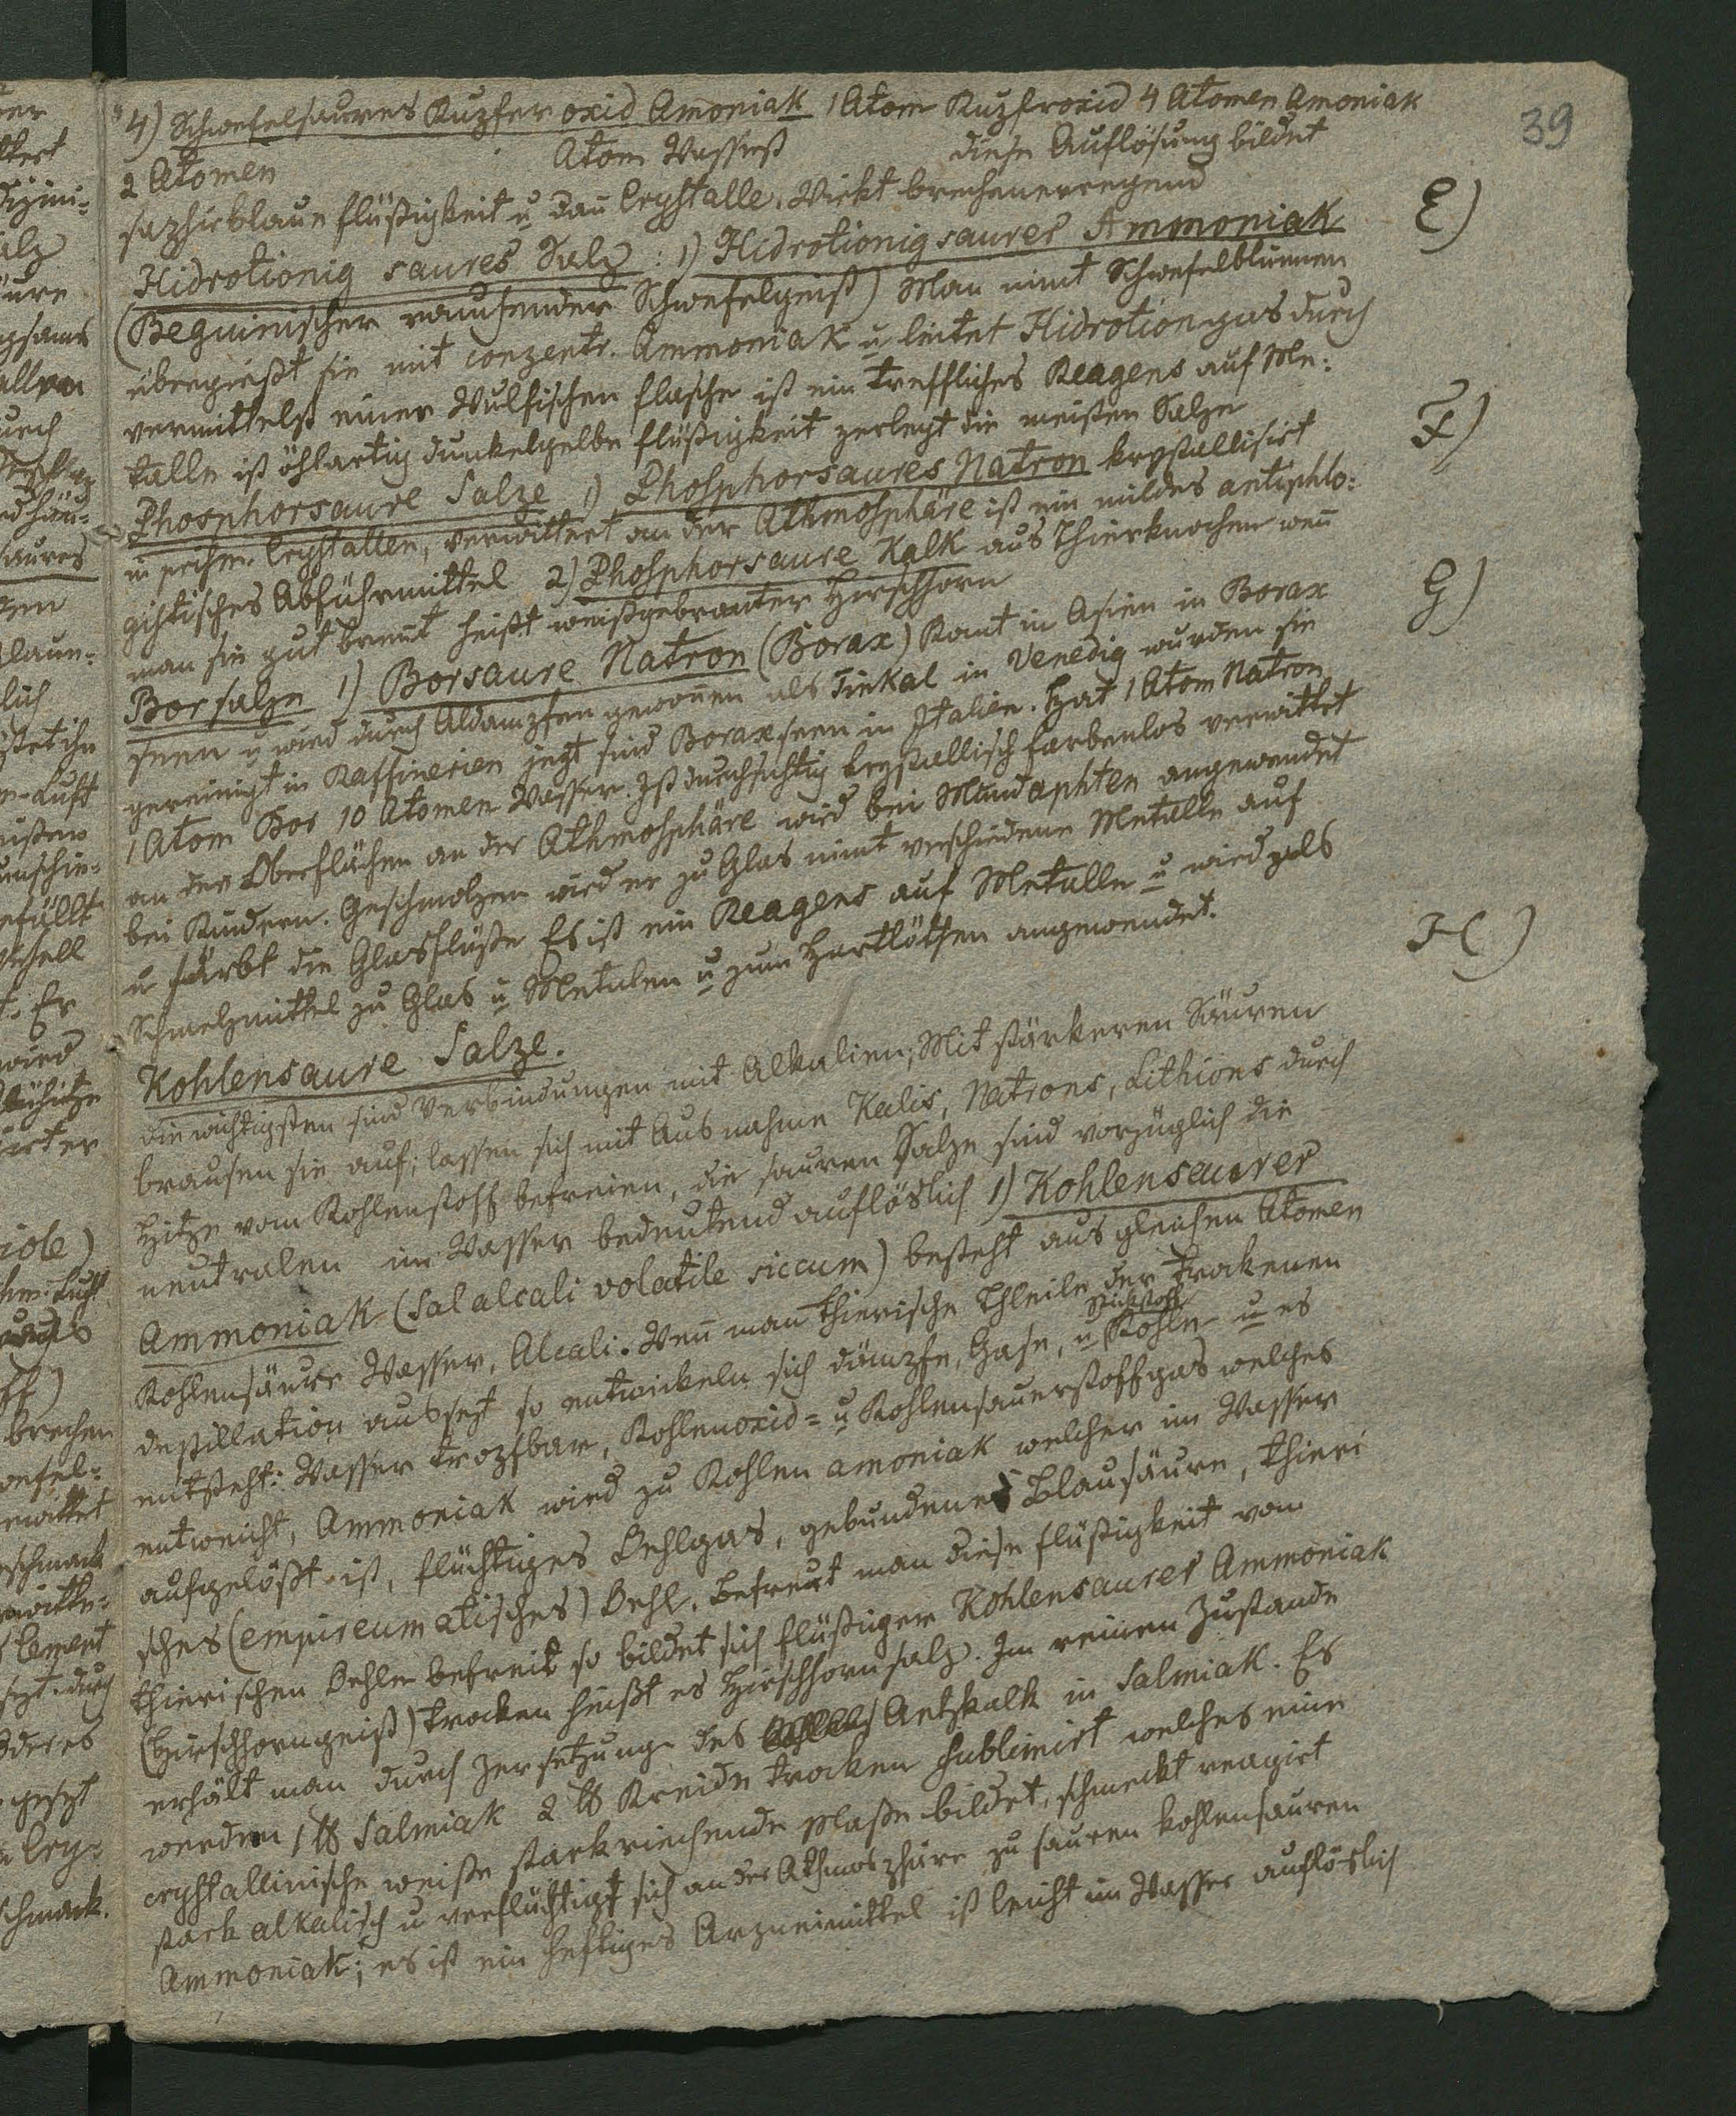 39
4) Schwefelsaures Kupfer oxid Amoniak 1 Atom Kupferoxid 4 Atomen Amoniak
2 Atomen Atom Wasserß diese Auflösung bildet
saphirblaue flüßigkeit u dan̄ Crystalle. Wirkt brechenerregend
E)
Hidrotionig saures Salz : 1) Hidrotionigsaurer Ammoniak
(Beguinischer rauchender Schwefelgeist) Man nimt Schwefelblumen
übergießt sie mit conzentr. Ammoniak u leitet Hidrotiongas durch
vermittelst einer Wulfischen flasche ist ein treffliches Reagens auf Me:
talle ist öhlartig dunkelgelbe flüßigkeit zerlegt die meisten Salze
F)
Phosphorsaure Salze 1) Phosphorsaures Natron krystallisirt
in prism. Crystallen, verwittert an der Athmosphäre ist ein mildes antiphlo:
gistisches Abführmittel 2) Phosphorsaure Kalk aus Thierknochen wen̄
man sie gut brent heißt weißgebranter Hirschhorn
G)
Borsalze 1) Borsaure Natron (Borax) Komt in Asien in Borax
seen u wird durch Abdampfen gewon̄en als Tinkal in Venedig wurden sie
gereinigt in Raffinerien jezt sind Boraxseen in Italien. Hat 1 Atom Natron
1 Atom Bor 10 Atomen Wasser. Ist durchsichtig krystallisch farbenlos verwittet
an der Oberflächen an der Athmosphäre wird bei Mundaphten angewendet
bei Kindern. Geschmolzen wird er zu Glas nimt verschiedene Metalle auf
u färbt die Glasflüße Es ist ein Reagens auf Metalle u wird als
Schmelzmittel zu Glas u Metalen u zum Hartlöthen angewendet.
H)
Kohlensaure Salze.
die wichtigsten sind Verbindungen mit Alkalien; Mit stärkeren Säuren
brausen sie auf; lassen sich mit Ausnahme Kalis, Natrons, Lithions durch
Hitze vom Kohlenstoff befreien, die sauren Salze sind vorzüglich die
neutralen im Wasser bedeutend auflöslich 1) Kohlensaurer
Ammoniak (Sal alcali volatile siccum) besteht aus gleichen Atomen
Kohlensäure Wasser, Alcali. Wen̄ man thierische Theile der trockenen
destillation aussezt so entwickeln sich dämpfe, Gase, u Stickstoff Kohle u es
entsteht: Wasser tropfbar, Kohlenoxid= u Kohlensauerstoffgas welches
entweicht, Ammoniak wird zu Kohlen amoniak welcher im Wasser
aufgelößt ist, flüchtiges Oehlgas, gebundene Blausäure, thieri
sches (empireumatisches) Oehl. Befreut man diese flüßigkeit vom
thierischen Oehle befreit so bildet sich flüßiger Kohlensaurer Ammoniak
(Hirschhorngeist) trocken heißt es Hirschhornsalz. Im reinen Zustande
erhält man durch Zersetzung des Aetzkalk in Salmiak. Es
werden 1 ℔ Salmiak 2 ℔ Kreide trocken sublimirt welches eine
crystallinische weiße starkriechende Maße bildet, schmeckt reagirt
stark alkalisch u verflüchtigt sich an der Athmosphäre zu sauren kohlensauren
Ammoniak; es ist ein heftiges Arzneimittel ist leicht im Wasser auflöslich